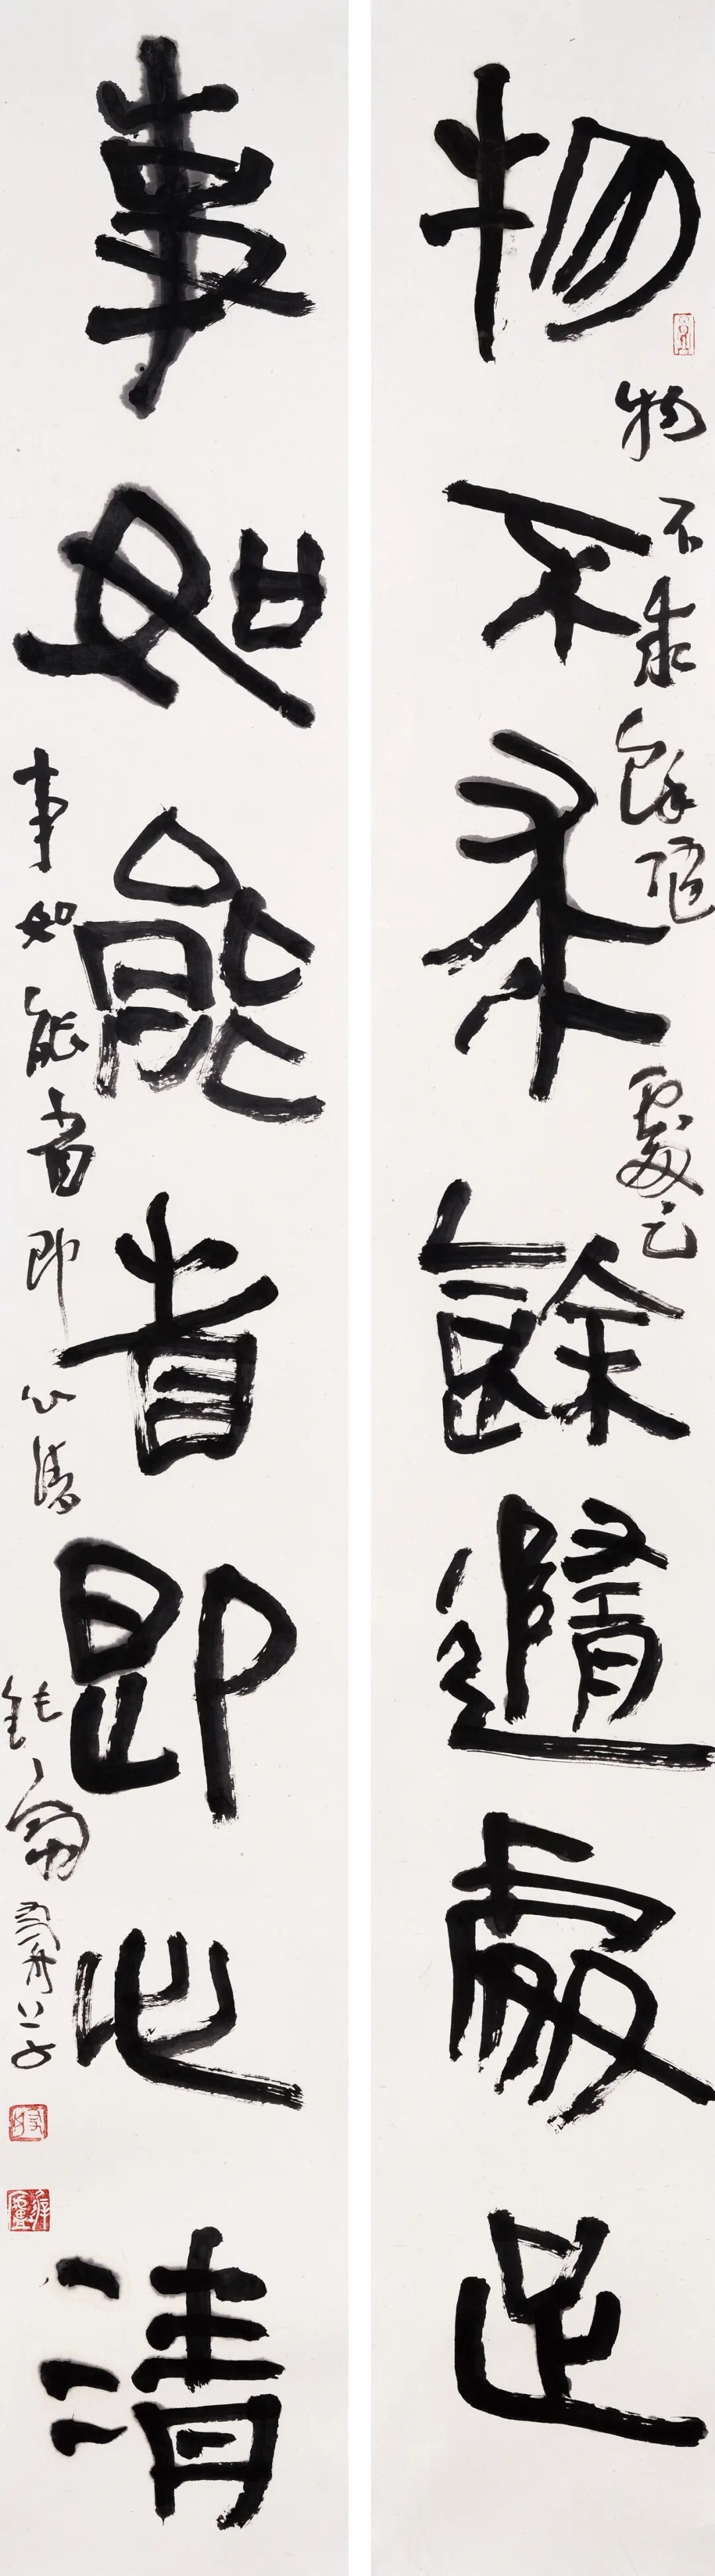 物不求餘隨處足
物不求餘隨處足
事如能省即心清
事如能省即心清